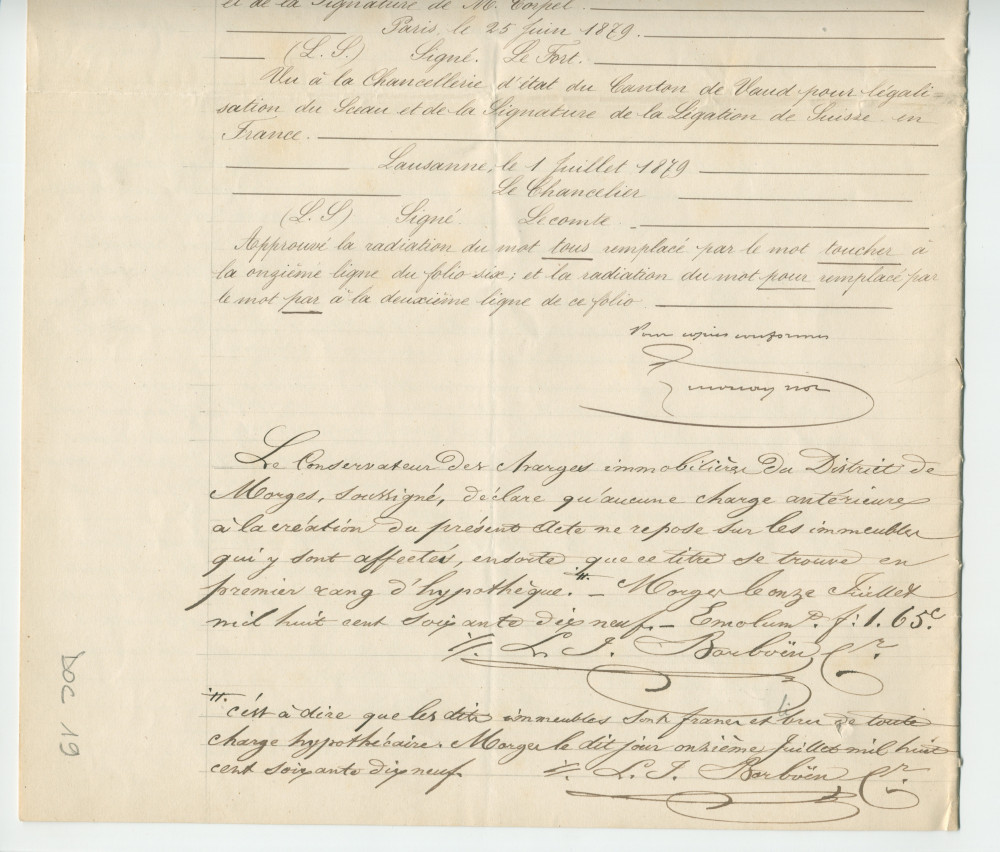 et de la Signature de M. Corpel.
Paris, le 25 Juin 1879.
(L. S.) Signé. Le Fort.
Vu à la Chancellerie d'état du Canton de Vaud pour légali=
sation du Sceau et de la Signature de la Légation de Suisse en
France.
Lausanne, le 1 Juillet 1879
Le Chancelier
(L. S) Signé. Lecomte.
Approuvé la radiation du mot tous remplacé par le mot toucher à
la onzième ligne du folio six; et la radiation du mot pour remplacé par
le mot par à la deuxième ligne de ce folio
Pour copies conformes
Monay not
Le Conservateur des charges immobilières du District de
Morges, soussigné, déclare qu'aucune charge antérieure
à la création du présent Acte ne repose sur les immeubles
qui y sont affectés, ensorte que ce titre se trouve en
premier rang d'hypothèque. — Morges le onze Juillet
mil huit cent soixante dix neuf. — Emolumt. f: 1. 65c.
L. J. Barboën Cr.
c'est à dire que les dits immeubles sont francs et de toute
charge hypothécaire. Morges le dit jour onzième Juillet mil huit
cent soixante dix neuf. L. J. Barboën Cr.
DOC 19